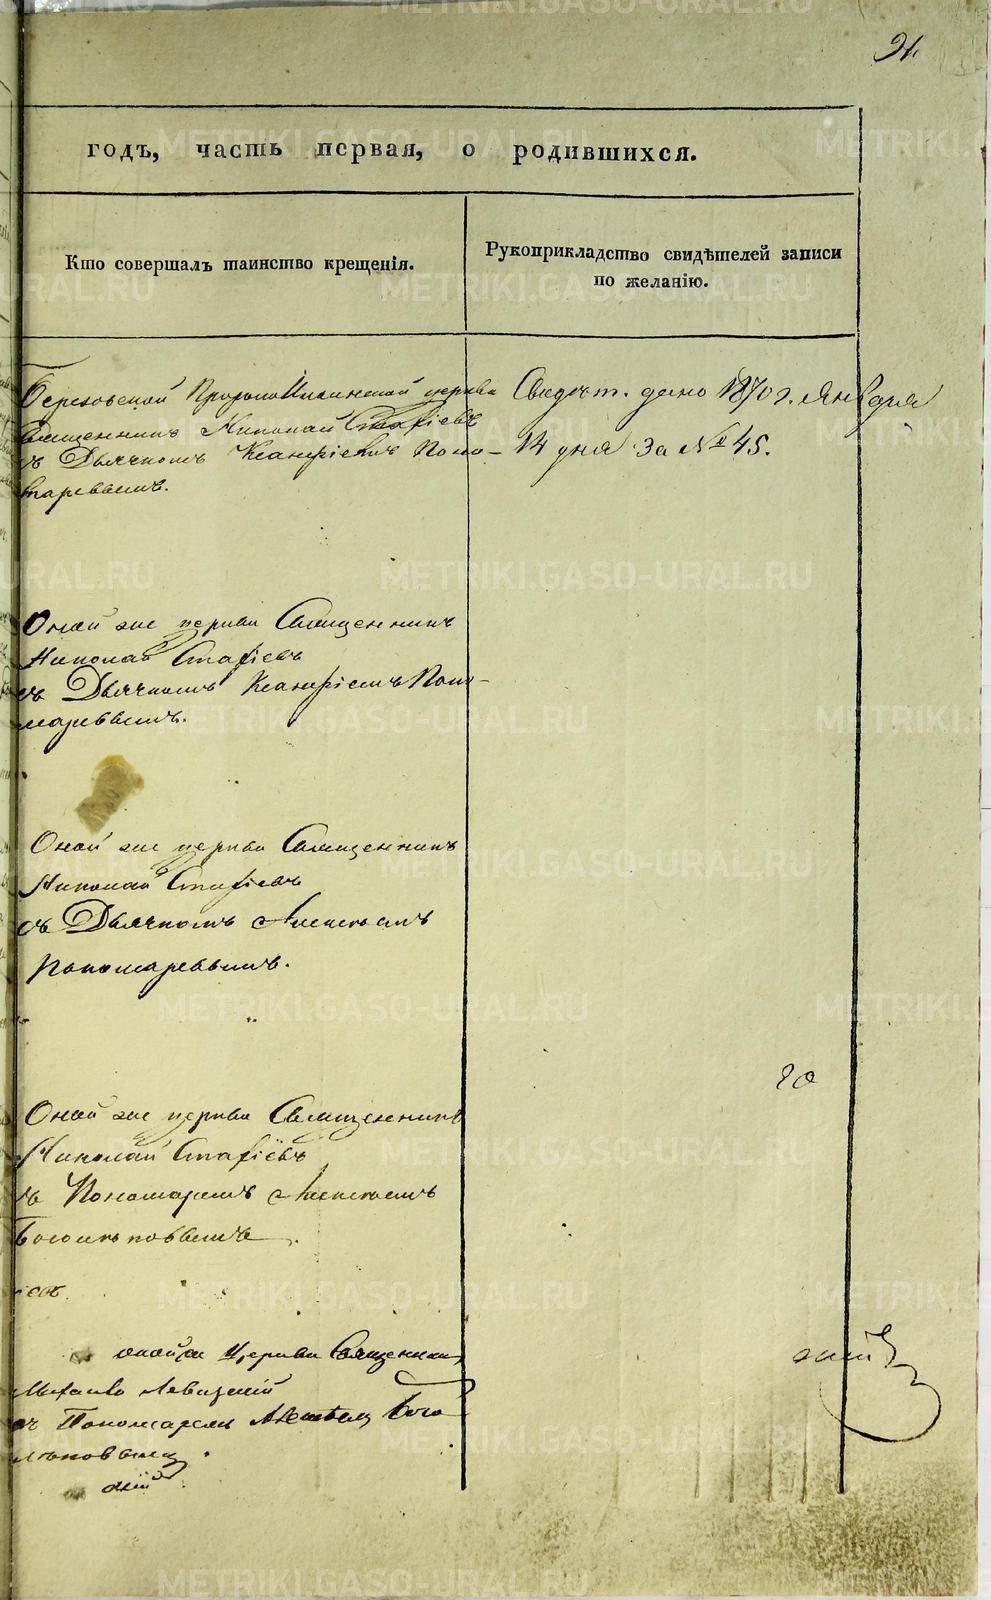 91.
годъ, часть первая, о родившихся.
Кто совершалъ таинство крещенія.
Рукоприкладство свидѣтелей записи
по желанію.
Березовской Пророко Ильинской церкви
Священникъ Николай Стафіевъ
съ Дьячкомъ Поно-
маревымъ.
Свидѣт. дано 1870 г. Января
14 дня за № 45.
Оной же церкви Священникъ
Николай Стафіевъ
съ Дьячкомъ Поно-
маревымъ.
Оной же церкви Священникъ
Николай Стафіевъ
съ Дьячкомъ Алексѣемъ
Пономаревымъ.
Оной же церкви Священникъ
Николай Стафіевъ
съ Пономаремъ Алексѣемъ
Боголѣповымъ.
оной же Церкви Священникъ
Михаилъ Левицкій
съ Пономаремъ Алексѣемъ Бого
лѣповымъ.
METRIKI.GASO-URAL.RU